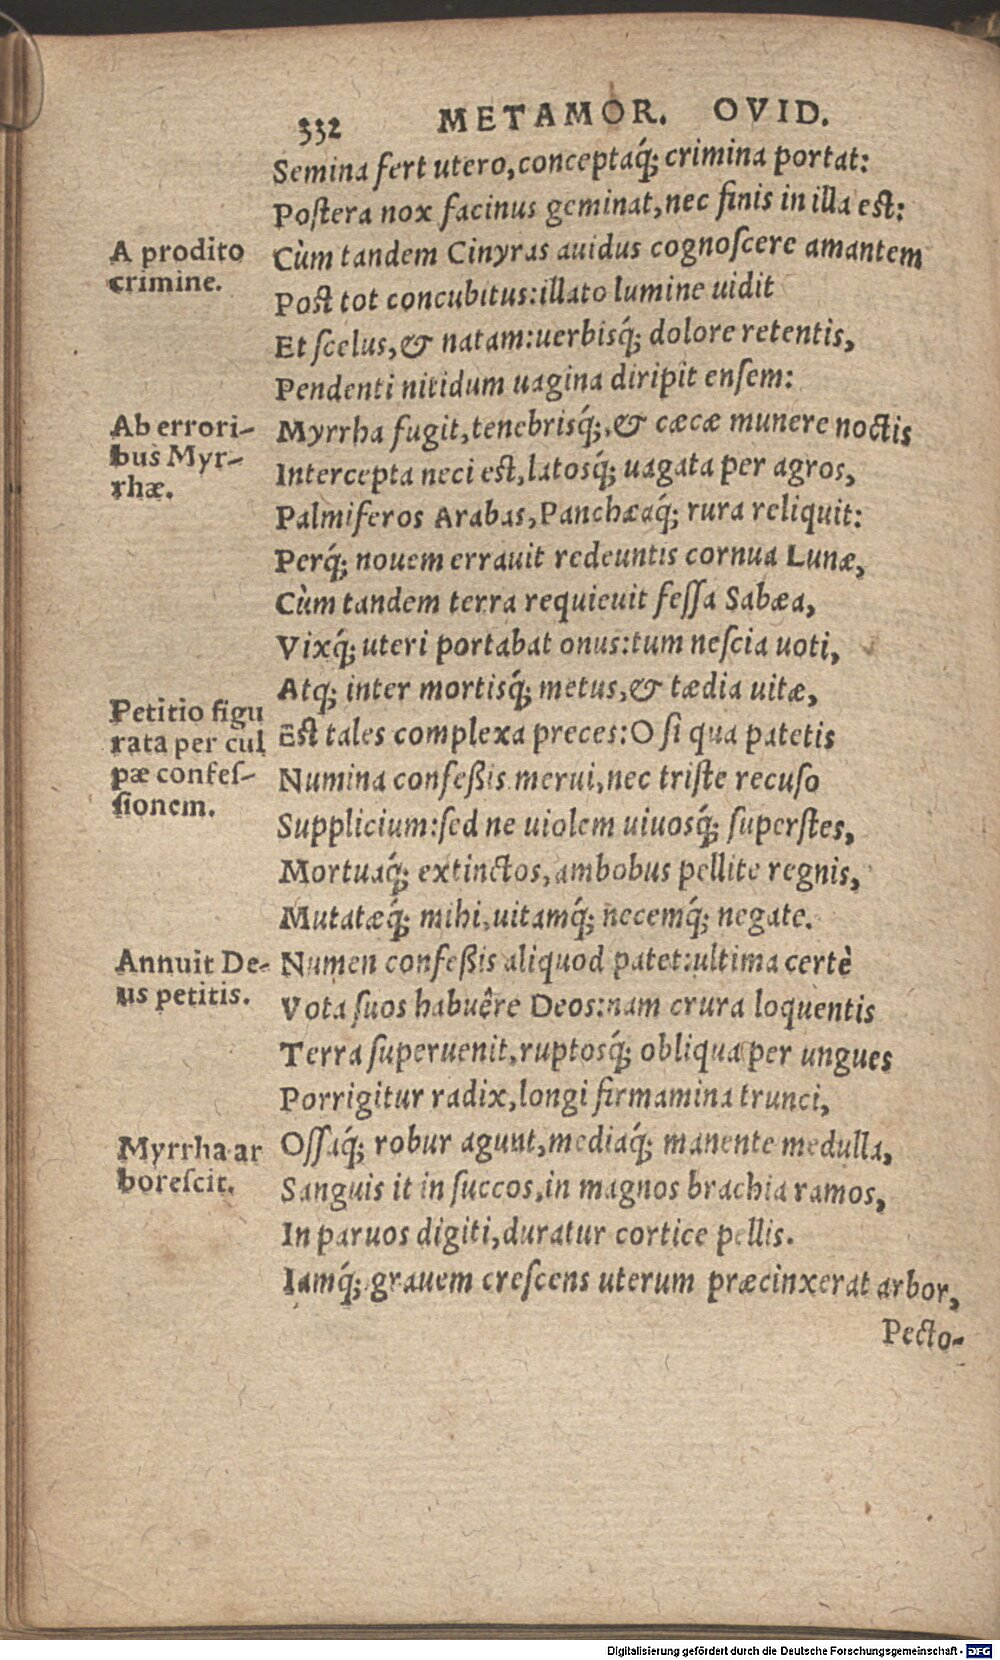 332 METAMOR. OVID.
Semina fert utero, conceptaq́; crimina portat:
Postera nox facinus geminat, nec finis in illa est:
A prodito
crimine.
Cùm tandem Cinyras auidus cognoscere amantem
Post tot concubitus: illato lumine uidit
Et scelus, & natam: uerbisq́; dolore retentis,
Pendenti nitidum uagina diripit ensem:
Ab errori-
bus Myr-
rhæ.
Myrrha fugit, tenebrisq́;, & cæcæ munere noctis
Intercepta neci est, latosq́; uagata per agros,
Palmiferos Arabas, Panchæaq́; rura reliquit:
Perq́; nouem errauit redeuntis cornua Lunæ,
Cùm tandem terra requieuit fessa Sabæa,
Vixq́; uteri portabat onus: tum nescia uoti,
Atq; inter mortisq́; metus, & tædia uitæ,
Petitio figu
rata per cul
pæ confes-
sionem.
Est tales complexa preces: O si qua patetis
Numina confeßis merui, nec triste recuso
Supplicium: sed ne uiolem uiuosq́; superstes,
Mortuaq́; extinctos, ambobus pellite regnis,
Mutatæq́; mihi, uitamq́; necemq́; negate.
Annuit De-
us petitis.
Numen confeßis aliquod patet: ultima certè
Vota suos habuêre Deos: nam crura loquentis
Terra superuenit, ruptosq́; obliqua per ungues
Porrigitur radix, longi firmamina trunci,
Myrrha ar
borescit.
Ossaq́; robur agunt, mediaq́; manente medulla,
Sanguis it in succos, in magnos brachia ramos,
In paruos digiti, duratur cortice pellis.
Iamq́; grauem crescens uterum præcinxerat arbor,
Pecto-
Digitalisierung gefördert durch die Deutsche Forschungsgemeinschaft - DFG